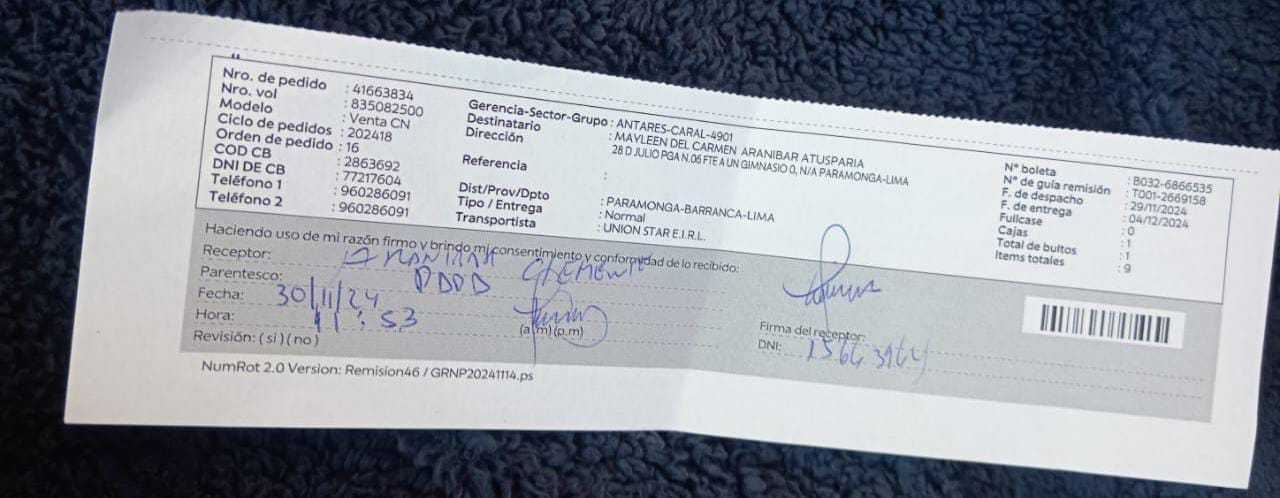 Nro. de pedido : 41663834
Nro. vol : 835082500
Modelo : Venta CN
Ciclo de pedidos : 202418
Orden de pedido : 16
COD CB : 2863692
DNI DE CB : 77217604
Teléfono 1 : 960286091
Teléfono 2 : 960286091
Gerencia-Sector-Grupo : ANTARES-CARAL-4901
Destinatario : MAYLEEN DEL CARMEN ARANIBAR ATUSPARIA
Dirección : 28 D JULIO PGA N.06 FTE A UN GIMNASIO 0, N/A PARAMONGA-LIMA
Referencia :
Dist/Prov/Dpto : PARAMONGA-BARRANCA-LIMA
Tipo / Entrega : Normal
Transportista : UNION STAR E.I.R.L.
N° boleta : B032-6866535
N° de guía remisión : T001-2669158
F. de despacho : 29/11/2024
F. de entrega : 04/12/2024
Fullcase : 0
Cajas : 1
Total de bultos : 1
Items totales : 9
Haciendo uso de mi razón firmo y brindo mi consentimiento y conformidad de lo recibido:
Receptor:
Parentesco:
Fecha: 30/11/24
Hora: 11:53 (a.m)(p.m)
Revisión: (si)(no)
Firma del receptor:
DNI:
NumRot 2.0 Version: Remision46 / GRNP20241114.ps